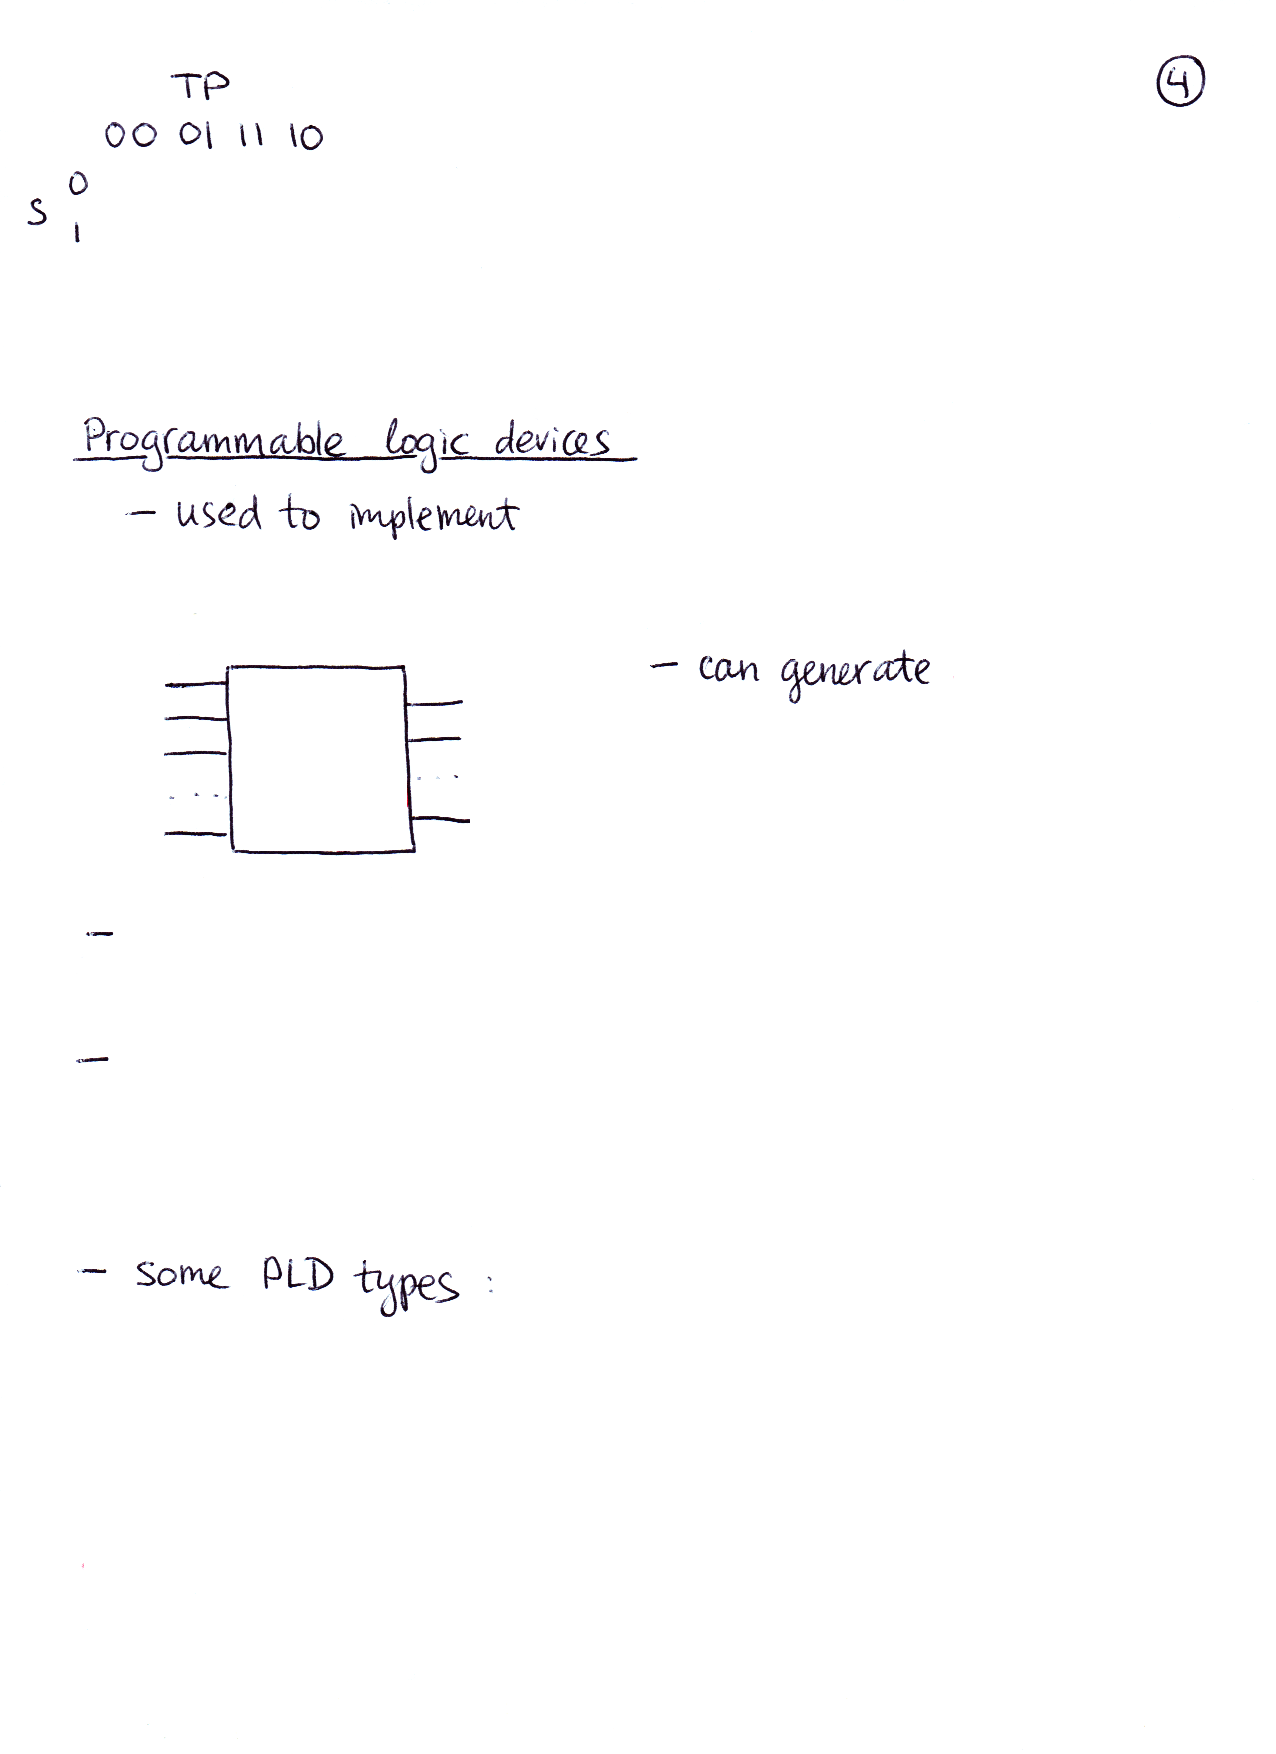 TP
④
00 01 11 10
0
S
1
Programmable logic devices
- used to implement
- can generate
-
-
- some PLD types :